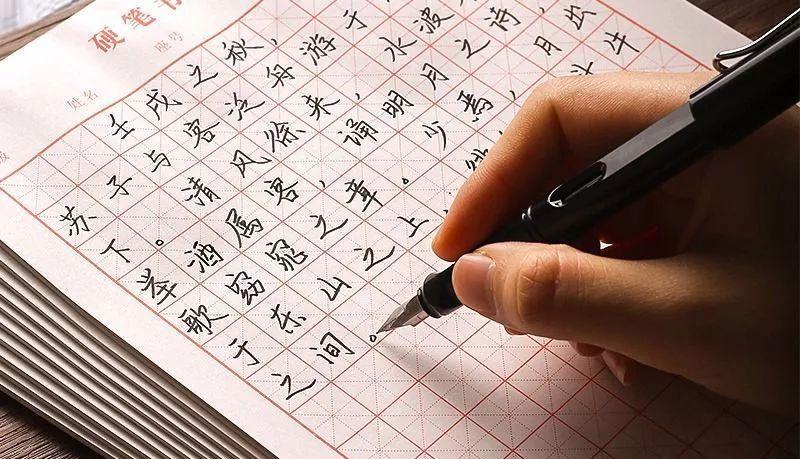 硬笔书
姓名 座号
壬戌之秋，
苏子与客泛舟游于
下。清风徐来，水波
举酒属客，诵明月之诗，
歌窈窕之章。少焉，月出
于东山之上，斗牛
之间。